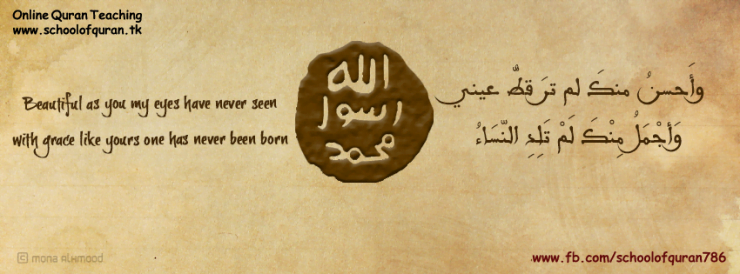 Online Quran Teaching
www.schoolofquran.tk
Beautiful as you my eyes have never seen
with grace like yours one has never been born
الله
رسول
محمد
وأَحسنُ منكَ لم ترَ قطُّ عيني
وَأجْمَلُ مِنْكَ لَمْ تَلِدِ النّسَاءُ
© mona alkmood
www.fb.com/schoolofquran786